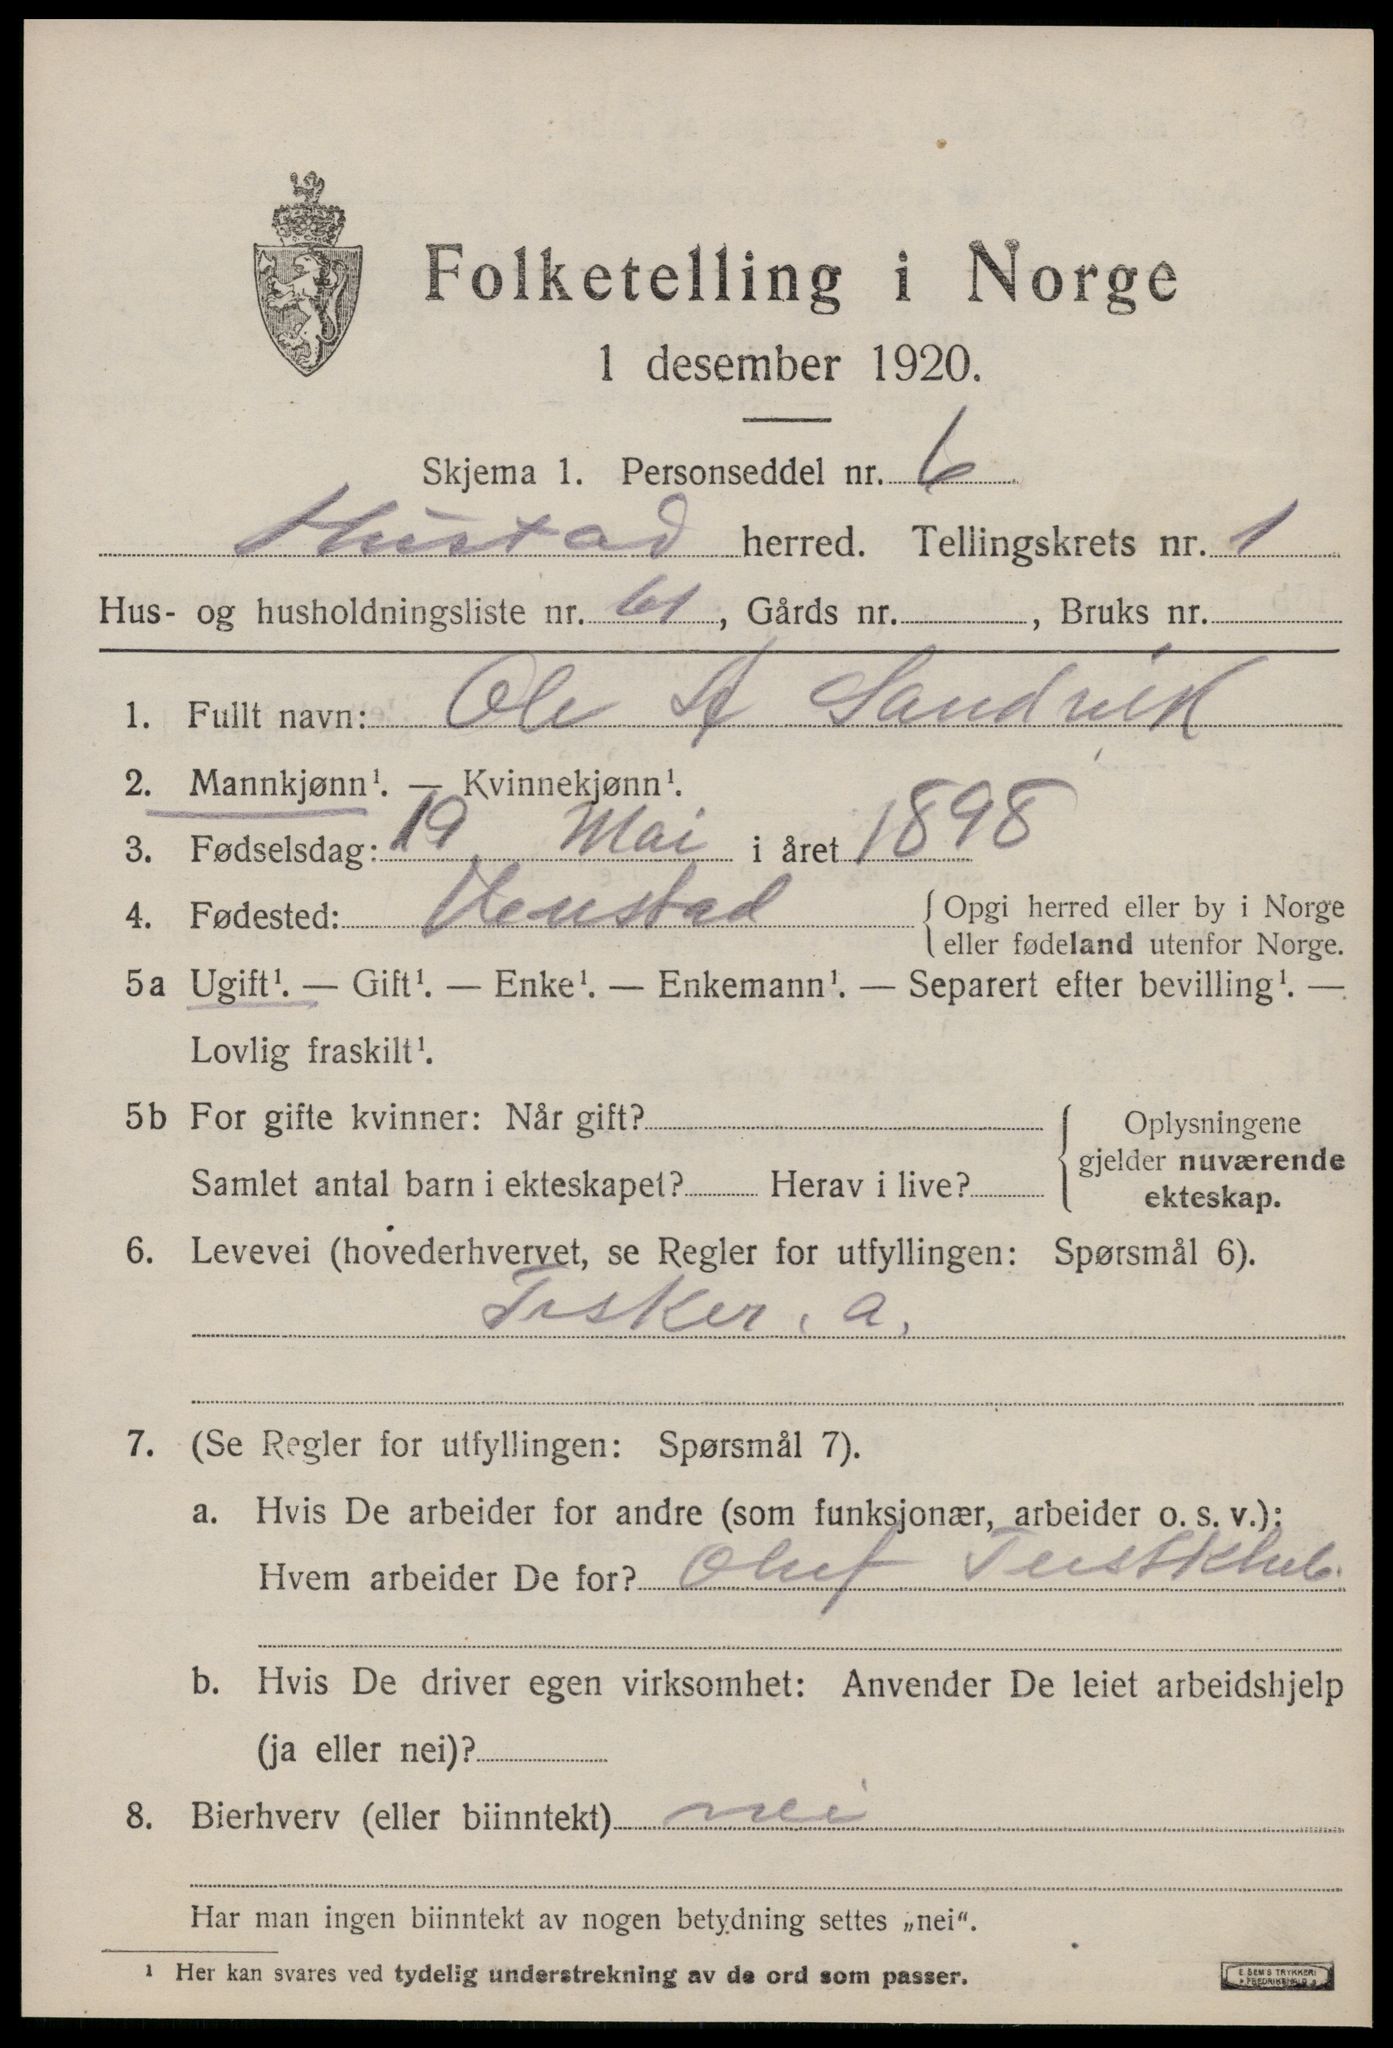 Folketelling i Norge
1 desember 1920.
Skjema 1. Personseddel nr. 6
Hustad herred. Tellingskrets nr. 1
Hus- og husholdningsliste nr. 61, Gårds nr. , Bruks nr.
1. Fullt navn: Ole A Sandvik
2. Mannkjønn¹. — Kvinnekjønn¹.
3. Fødselsdag: 19 Mai i året 1898
4. Fødested: Hustad {Opgi herred eller by i Norge
eller fødeland utenfor Norge.
5a Ugift¹. — Gift¹. — Enke¹. — Enkemann¹. — Separert efter bevilling¹. —
Lovlig fraskilt¹.
5b For gifte kvinner: Når gift?
Samlet antal barn i ekteskapet? Herav i live?
{Oplysningene
gjelder nuværende
ekteskap.
6. Levevei (hovederhvervet, se Regler for utfyllingen: Spørsmål 6).
Fisker. a.
7. (Se Regler for utfyllingen: Spørsmål 7).
a. Hvis De arbeider for andre (som funksjonær, arbeider o. s. v.):
Hvem arbeider De for? Oluf
b. Hvis De driver egen virksomhet: Anvender De leiet arbeidshjelp
(ja eller nei)?
8. Bierhverv (eller biinntekt) nei
Har man ingen biinntekt av nogen betydning settes „nei“.
¹ Her kan svares ved tydelig understrekning av de ord som passer.
E. SEM'S TRYKKERI
FREDRIKSHALD